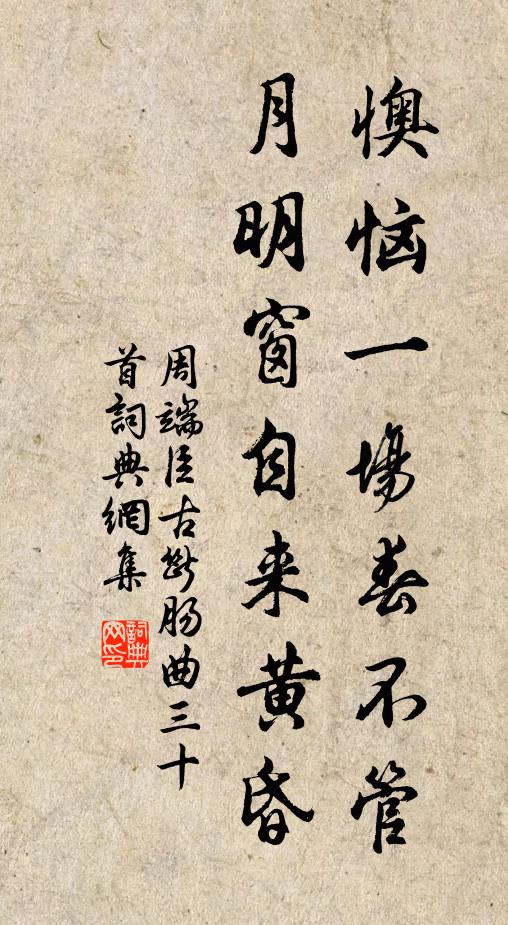 懊恼一場春不管
月明窗自来黄昏
周端臣古断肠曲三十
首詞典網集
詞典網印